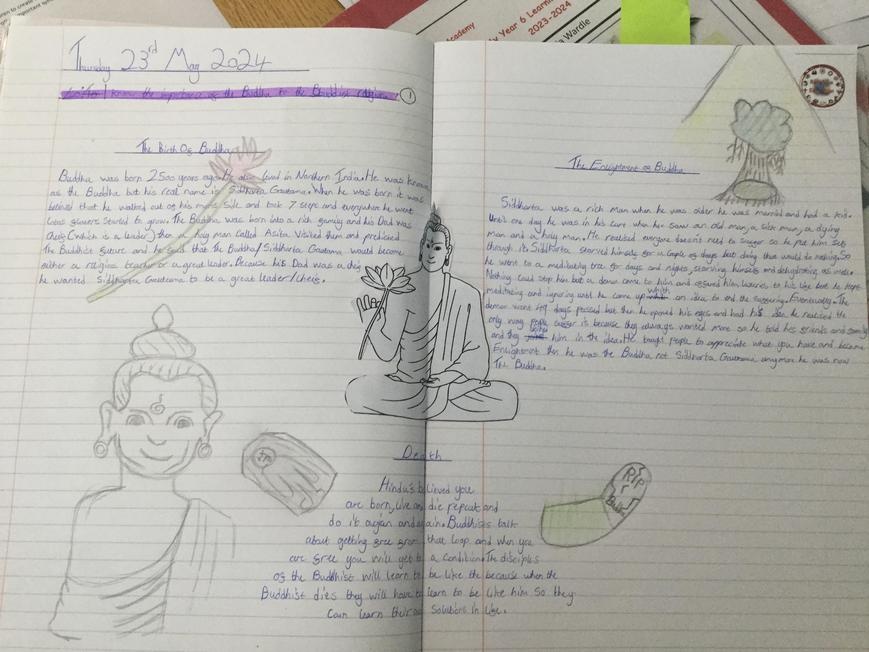 Academy
Year 6 Learni
2023-2024
Wardle
Thursday 23rd May 2024
I know the importance of the Buddha to the Buddhist religion.
1
The Birth Of Buddha
Buddha was born 2500 years ago. He also lived in Northern India. He was known
as the Buddha but his real name is Siddharta Gautama. When he was born it was
beleved that he walked out of his mums side and took 7 steps and everywhere he went
lotus flowers started to grow. The Buddha was born into a rich family and his Dad was
cheif (which is a leader) then a holy man called Asita visited them and predicted
The Buddhist future and he said that the Buddha/Siddharta Gautama would become
either a religius teacher or a great leader. Because his Dad was a cheif
he wanted Siddharta Gautama to be a great leader/cheif.
The Enlightment of Buddha
Siddharta was a rich man when he was older he was married and had a kid.
Until one day he was in his care when he saw an old man, a sick man, a dying
man and a holy man. He realised everyone doesn't need to suffer so he put him self
through it. Siddharta starved himself for a couple of days but doing that would do nothing. So
he went to a meditating tree for days and nights, starving himself and dehydrating as well.
Nothing could stop him but a demon came to him and offered him luxuries to his like but he kept
meditating and ignoring until he came up with an idea to end the suffering. Eventually. The
demon went 49 days passed but then he opened his eyes and had his idea. he realised the
only way people suffer is because they always wanted more so he told his friends and family
and they joined him in the idea. He taught people to appreciate what you have and became
Enlightment then he was the Buddha not Siddharta Gautama anymore he was now
The Buddha.
Death
Hindu's believed you
are born, live and die repeat and
do it again and again. Buddhists talk
about getting free from that loop and when you
are free you will get to a condition. The disciples
of the Buddhist will learn to be like the because when the
Buddhist dies they will have to learn to be like him so they
can learn their own solutions in life.
RIP